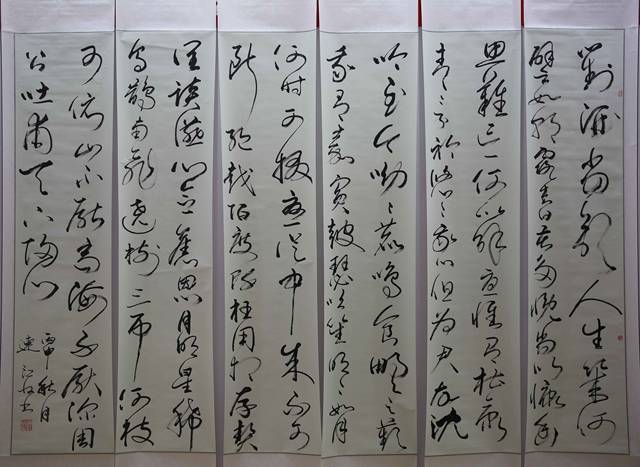 對酒當歌人生幾何
譬如朝露去日苦多慨當以慷憂
思難忘何以解憂惟有杜康
青青子衿悠悠我心但為君故沈
吟至今呦呦鹿鳴食野之苹
我有嘉賓鼓瑟吹笙明明如月
何時可掇憂從中來不可
斷絕越陌度阡枉用相存契
闊談讌心念舊恩月明星稀
烏鵲南飛繞樹三匝何枝
可依山不厭高海不厭深周
公吐哺天下歸心
丙申秋月